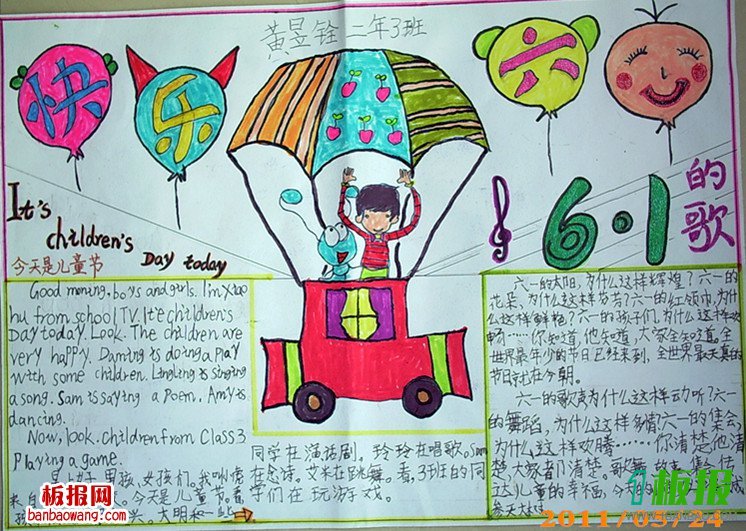 黄昱铨 二年3班
快 乐 六 一
It's children's Day today
今天是儿童节
6·1的歌
Good morning, boys and girls. I'm xiao
hu from school TV. It's children's
Day today. Look. The children are
very happy. Daming is doing a play
with some children. Lingling is singing
a song. Sam is saying a poem. Amy is
dancing.
Now, look. children from Class 3
Playing a game.
早上好,男孩、女孩们。我叫
来自
今天是儿童节。看
兴。大明
同学在演话剧。玲玲在唱歌。Sam
在念诗。艾米在跳舞。看,3班的同
学们在玩游戏。
六一的太阳,为什么这样辉煌?六一的
花是,为什么这样芬芳?六一的红领巾,为什
么这样鲜艳?六一的孩子们,为什么这样欢
畅……你知道,他知道,大家全知道。全
世界最年少的节日已经来到,全世界最天真的
节日就在今朝。
六一的歌为什么这样动听?六一
的舞蹈,为什么这样多情?六一的集会,
为什么这样欢腾……你清楚,他清
楚,大家都清楚。歌舞
这儿童的幸福,今
板报网
banbaowang.com
板报
2011/05/24